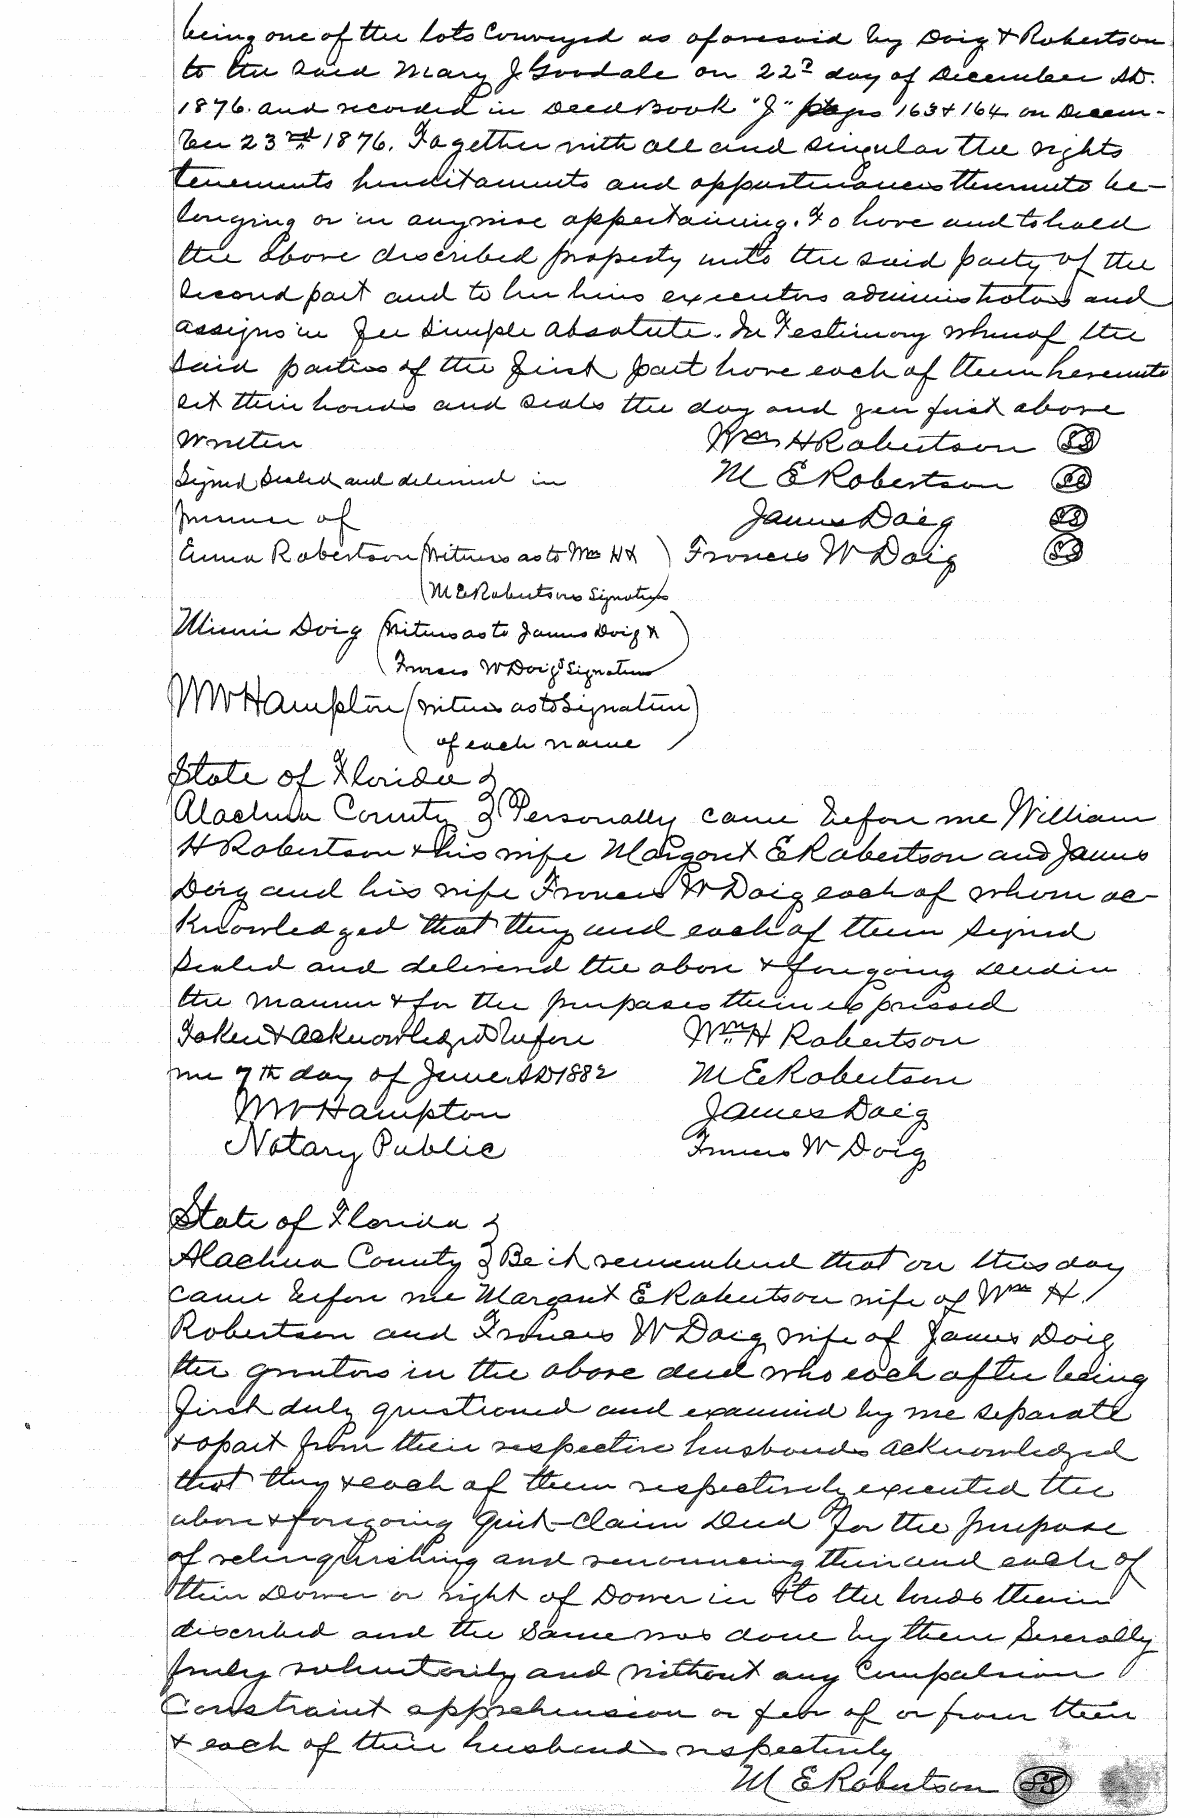 being one of the lots Conveyed as aforesaid by Doig & Robertson
to the said Mary J Goodale on 22d day of December AD.
1876. and recorded in Deed Book "J" pages 163 & 164 on Decem-
ber 23rd 1876. Together with all and singular the rights
tenements hereditaments and appurtenances thereunto be-
longing or in anywise appertaining. To have and to hold
the above described property unto the said party of the
second part and to her heirs executors administrators and
assigns in fee simple absolute. In Testimony whereof the
said parties of the first part have each of them hereunto
set their hands and seals the day and year first above
written Wm H Robertson SS
Signed Sealed and delivered in M E Robertson SS
presence of James Doig SS
Emma Robertson (Witness as to Wm H & Francis W Doig SS
(M E Robertsons Signatures)
Minnie Doig (Witness as to James Doig &
Francis W Doig's Signatures)
WW Hampton (witness as to Signature
of each name)
State of Florida }
Alachua County } Personally came before me William
H Robertson & his wife Margaret E Robertson and James
Doig and his wife Francis W Doig each of whom ac-
knowledged that they and each of them signed
sealed and delivered the above & foregoing deed in
the manner & for the purposes therein expressed
Taken & acknowledged before Wm H Robertson
me 7th day of June AD 1882 M E Robertson
WW Hampton James Doig
Notary Public Francis W Doig
State of Florida }
Alachua County } Be it remembered that on this day
came before me Margaret E Robertson wife of Wm H
Robertson and Francis W Doig wife of James Doig
the grantors in the above deed who each after being
first duly questioned and examined by me separate
& apart from their respective husbands acknowledged
that they & each of them respectively executed the
above & foregoing Quit-Claim Deed for the purpose
of relinquishing and renouncing their and each of
their Dower or right of Dower in & to the lands therein
described and the same was done by them Severally
freely voluntarily and without any Compulsion
Constraint apprehension or fear of or from their
& each of their husbands respectively
M E Robertson SS